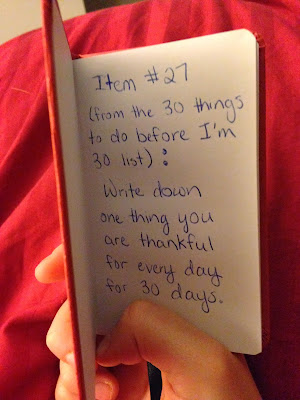 Item #27
(from the 30 things
to do before I'm
30 list):
Write down
one thing you
are thankful
for every day
for 30 days.